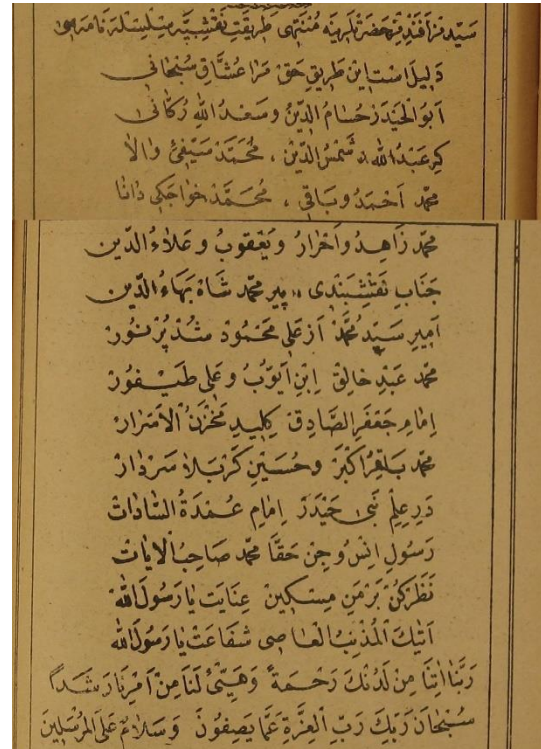 سَيّدمزأفندمز حضرتلرينه مُنتهى طريقتِ نقشبيّه سِلسِلهٔ نامه سى
دَليل است اين طريقِ حق مَرا عُشّاقِ سُبْحانى
اَبُو الحَيْدَر حُسَامُ الدّينُ وسَعْدُ اللهِ رُكانى
كِر عَبْدُ الله شَمْسُ الدّين ، مُحَمَّدْ سَيْفِىْ وَالا
مُحمّد اَحْمَدُ وبَاقى ، مُحَمَّدْ خوَاجَكِى دَانا
مُحمّد زَاهِدُ وَاَحْرَارُ ويَعْقوبُ وعَلاءُ الدّين
جَنابِ نَقْشِبَنْدى ، پيرِ محمّد شَاهْ بَهَاءُ الدّين
اَميرِ سَيّد مُحمّدْ اَزْ عَلى مَحْمُودْ شُدْ پُرْ نُورْ
مُحمّد عَبْدِ خَالِقْ اِبْنِ اَيّوبُ وعَلى طَيْفُورْ
اِمَامِ جَعْفَرِ الصَّادِقْ كِليدِ مَخْزَنُ الاَسْرَارْ
مُحمّد بَاقِرُ اَكْبَرْ وحُسَيْنِ كَرْبَلا سَرْدَارْ
دَرِ عِلْمِ نَبى حَيْدَرْ اِمَامِ عُمْدَةُ السَّادَاتْ
رَسُولِ اِنْسُ وجِنْ حَقّا مُحمّد صَاحِبُ الاٰيَاتْ
نَظَرْ كُنْ بَرْ مَنِ مِسْكِينْ عِنَايَتْ يَا رَسُولَ اللهْ
اَتَيْكَ الْمُذْنِبُ الْعَاصِى شَفَاعَتْ يَا رَسُولَ الله
رَبَّنَا اٰتِنَا مِنْ لَدُنْكَ رَحْمَةً وَهَيّئْ لَنَا مِنْ اَمْرِنَا رَشَدًا
سُبْحَانَ رَبِّكَ رَبِّ الْعِزَّةِ عَمَّا يَصِفُونَ وَسَلامٌ عَلَى الْمُرْسَلِينَ